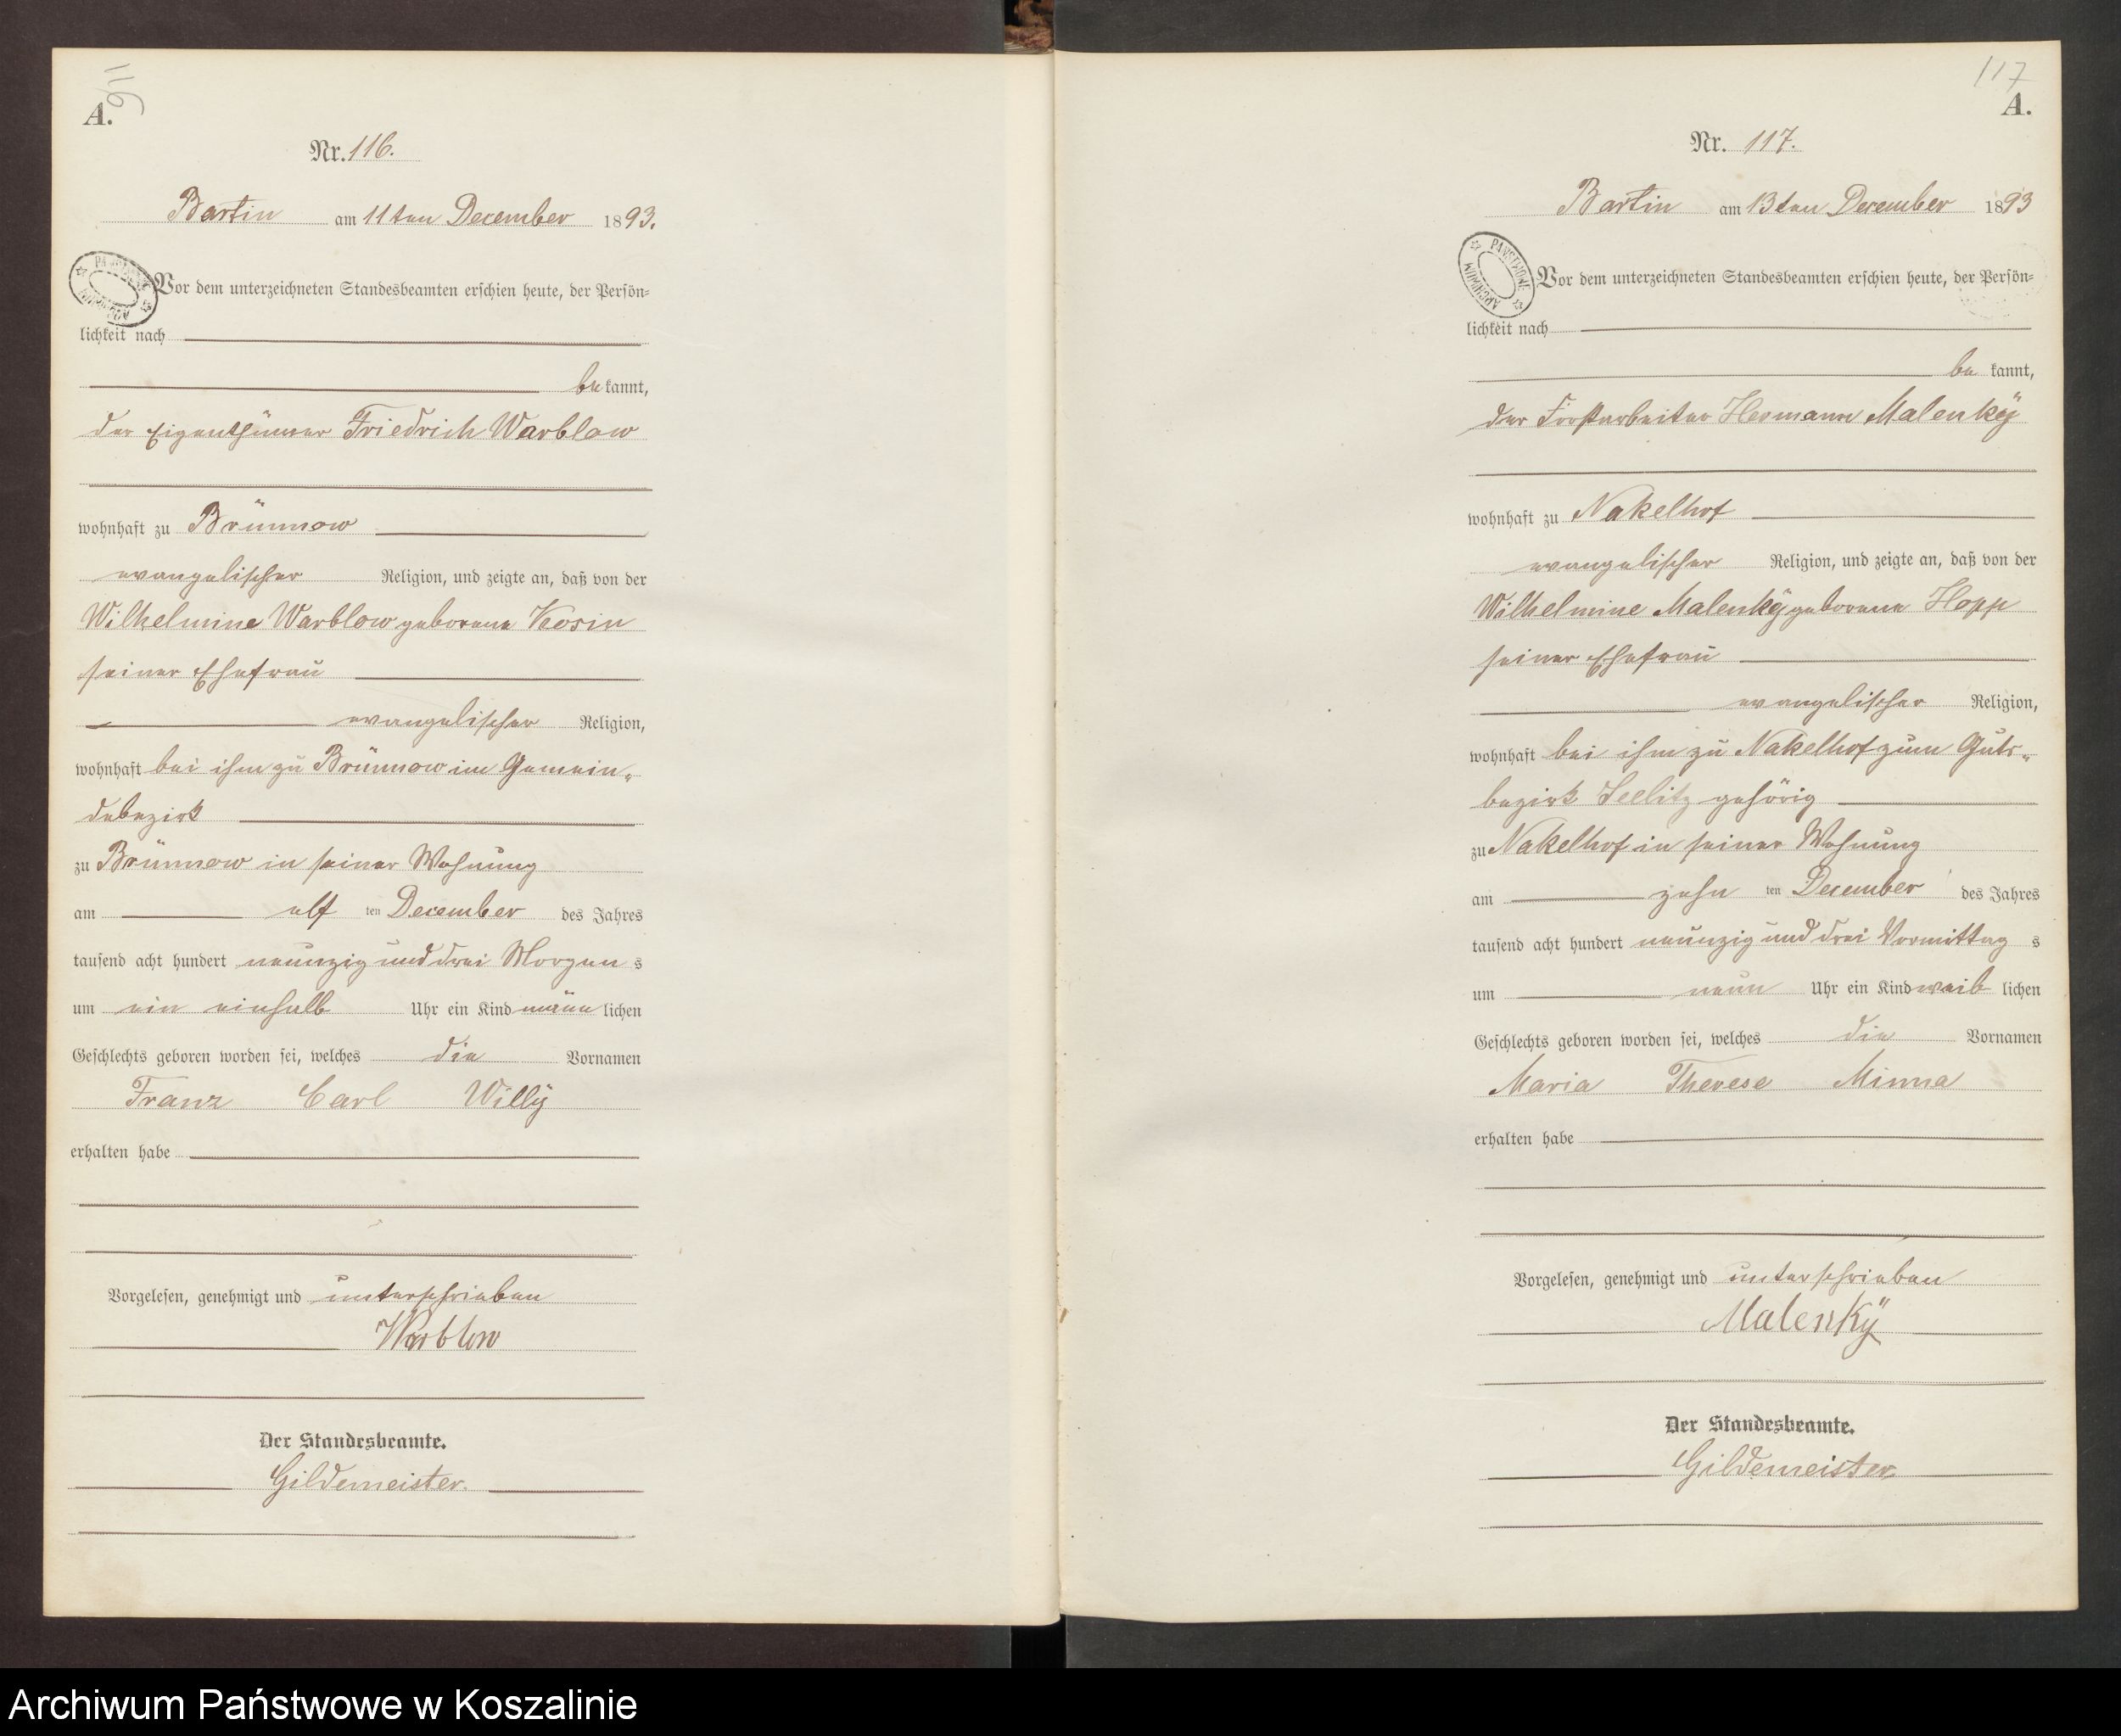 116
A.
Nr. 116.
Bartin am 11ten December 1893.
Vor dem unterzeichneten Standesbeamten erschien heute, der Persön-
lichkeit nach
be kannt,
der Eigenthümer Friedrich Warblow
wohnhaft zu Brünnow
evangelischer Religion, und zeigte an, daß von der
Wilhelmine Warblow geborene Kosin
seiner Ehefrau
evangelischer Religion,
wohnhaft bei ihm zu Brünnow im Gemein-
debezirk
zu Brünnow in seiner Wohnung
am elf ten December des Jahres
tausend acht hundert neunzig und drei Morgens
um ein einhalb Uhr ein Kind männlichen
Geschlechts geboren worden sei, welches die Vornamen
Franz Carl Willÿ
erhalten habe
Vorgelesen, genehmigt und unterschrieben
Warblow
Der Standesbeamte.
Gildemeister.
117
A.
Nr. 117.
PAŃSTWOWE ARCHIWUM
Bartin am 13ten December 1893
Vor dem unterzeichneten Standesbeamten erschien heute, der Persön-
lichkeit nach
be kannt,
der Forstarbeiter Hermann Malenkÿ
wohnhaft zu Nakelhof
evangelischer Religion, und zeigte an, daß von der
Wilhelmine Malenkÿ geborene Hopp
seiner Ehefrau
evangelischer Religion,
wohnhaft bei ihm zu Nakelhof zum Guts-
bezirk Seelitz gehörig
zu Nakelhof in seiner Wohnung
am zehn ten December des Jahres
tausend acht hundert neunzig und drei Vormittags
um neun Uhr ein Kind weiblichen
Geschlechts geboren worden sei, welches die Vornamen
Maria Therese Minna
erhalten habe
Vorgelesen, genehmigt und unterschrieben
Malenkÿ
Der Standesbeamte.
Gildemeister
Archiwum Państwowe w Koszalinie